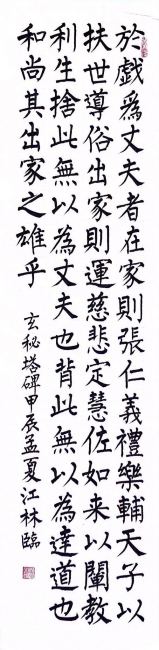 於戲為丈夫者在家則張仁義禮樂輔天子以
扶世導俗出家則運慈悲定慧佐如来以闡教
利生捨此無以為丈夫也背此無以為達道也
和尚其出家之雄乎
玄秘塔碑甲辰孟夏江林臨